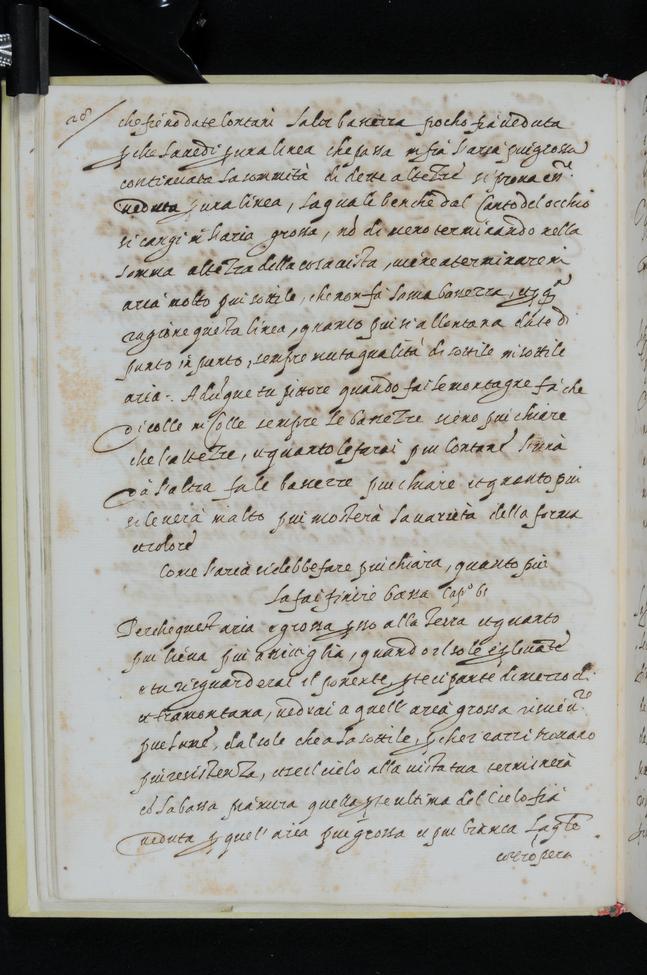 28
che siéno date lontani la lor bassezza pocho sia veduta
p che la vedi p una linea che passa in fra l'aria piu grossa
continuata la sommità di dette altezze si prova
veduta p una linea, la quale benche dal Canto del occhio
si cangi in l'aria grossa, nō di meno terminando nella
somma altezza della cosa vista, viene a terminare in
aria molto piu sottile, che non fa la sua bassezza, et p
ragione questa linea, quanto piu si allontana da te di
punto in punto, sempre muta qualità di sottile in sottile
aria. Adūque tu pittore quando fai le montagne fà che
di colle in Colle sempre le bassezze siēno piu chiare
che l'altezze, et quanto le farai piu lontane l'una
da l'altra fa le bassezze piu chiare et quanto piu
si leverà in alto piu mosterà la varietà della forma
et colore
Come l'aria si debbe fare piu chiara, quanto piu
la fai finire bassa Cap.º 61
Perche quest aria e grossa p sso alla terra et quanto
piu si leva piu assottiglia, quando il sole e p levante
e tu risguarderai il ponente, p tecipante di mezzo di
et tramontana, vedrai a quell' aria grossa ricevere
piu lume, dal sole che a la sottile, p che i razzi trovano
piu resistenza, et se il cielo alla vista tua terminerà
cō la bassa pianura quella pte ultima del Cielo fia
veduta p quell' aria piu grossa e piu bianca la qle